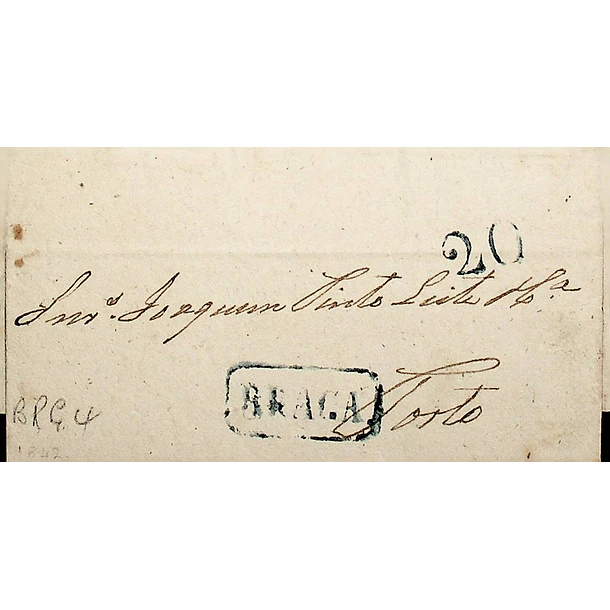 20
Snrs. Joaquim Pinto Leite Fa.
BRAGA
Porto
BRG 4
1842.